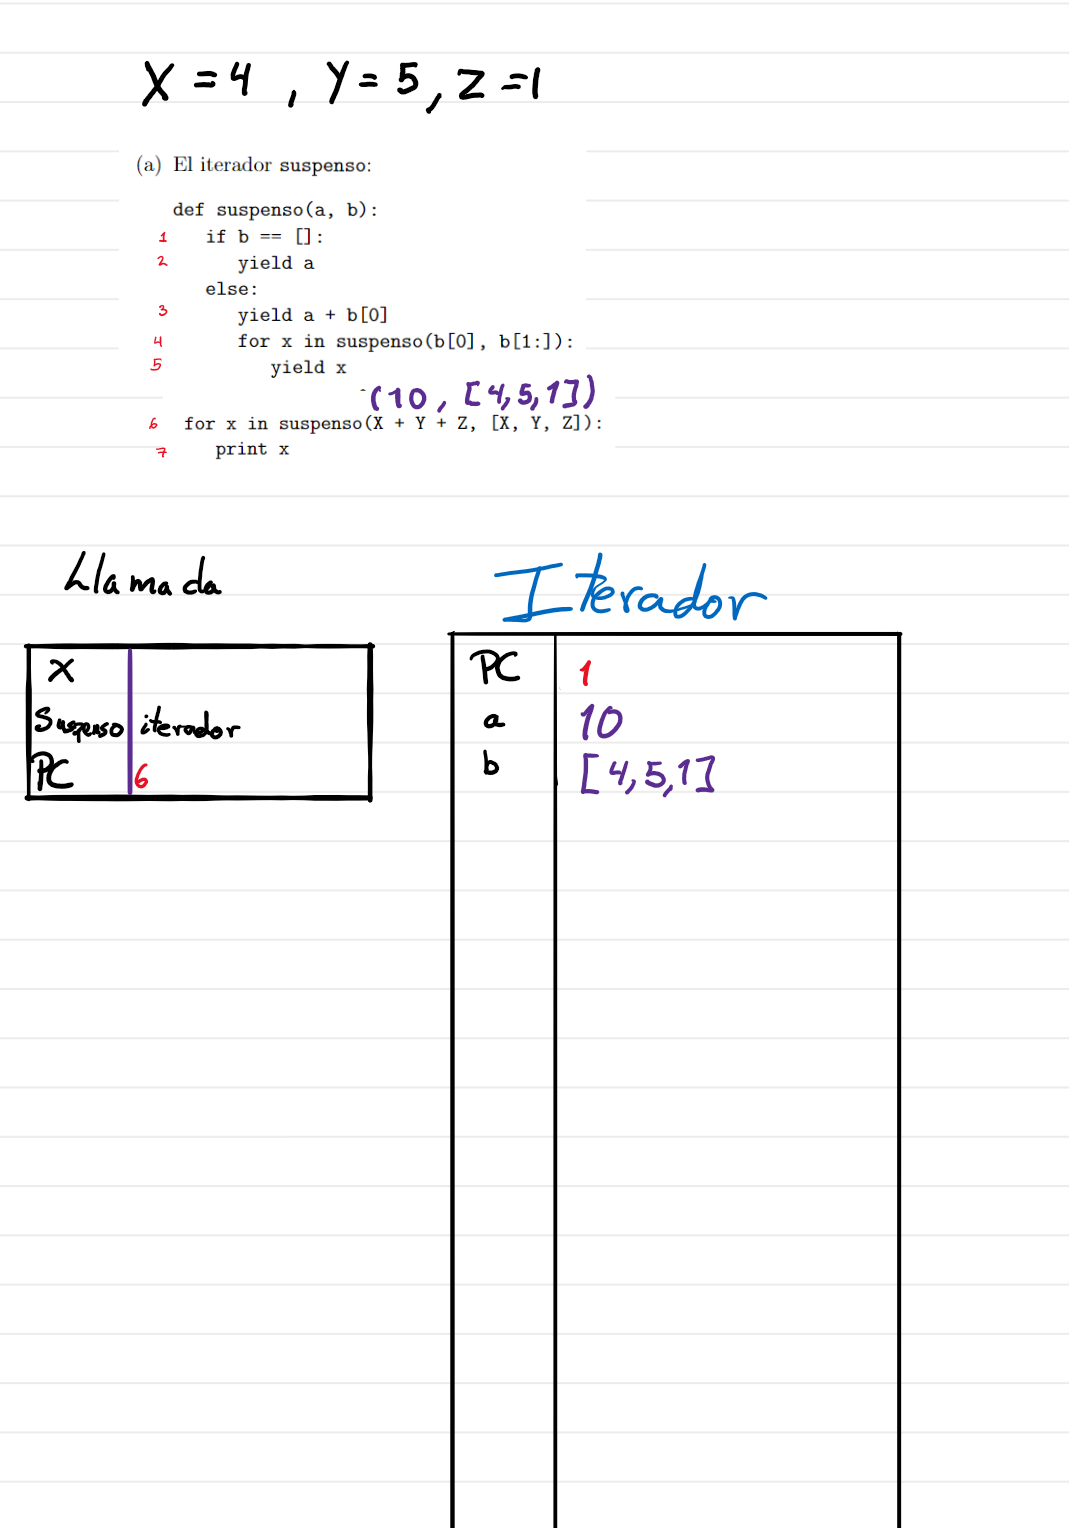 X = 4 , Y = 5, Z = 1
(a) El iterador suspenso:
def suspenso(a, b):
1 if b == []:
2 yield a
else:
3 yield a + b[0]
4 for x in suspenso(b[0], b[1:]):
5 yield x
(10, [4,5,1])
6 for x in suspenso(X + Y + Z, [X, Y, Z]):
7 print x
Llamada
Iterador
X
Suspenso iterador
PC 6
PC 1
a 10
b [4,5,1]